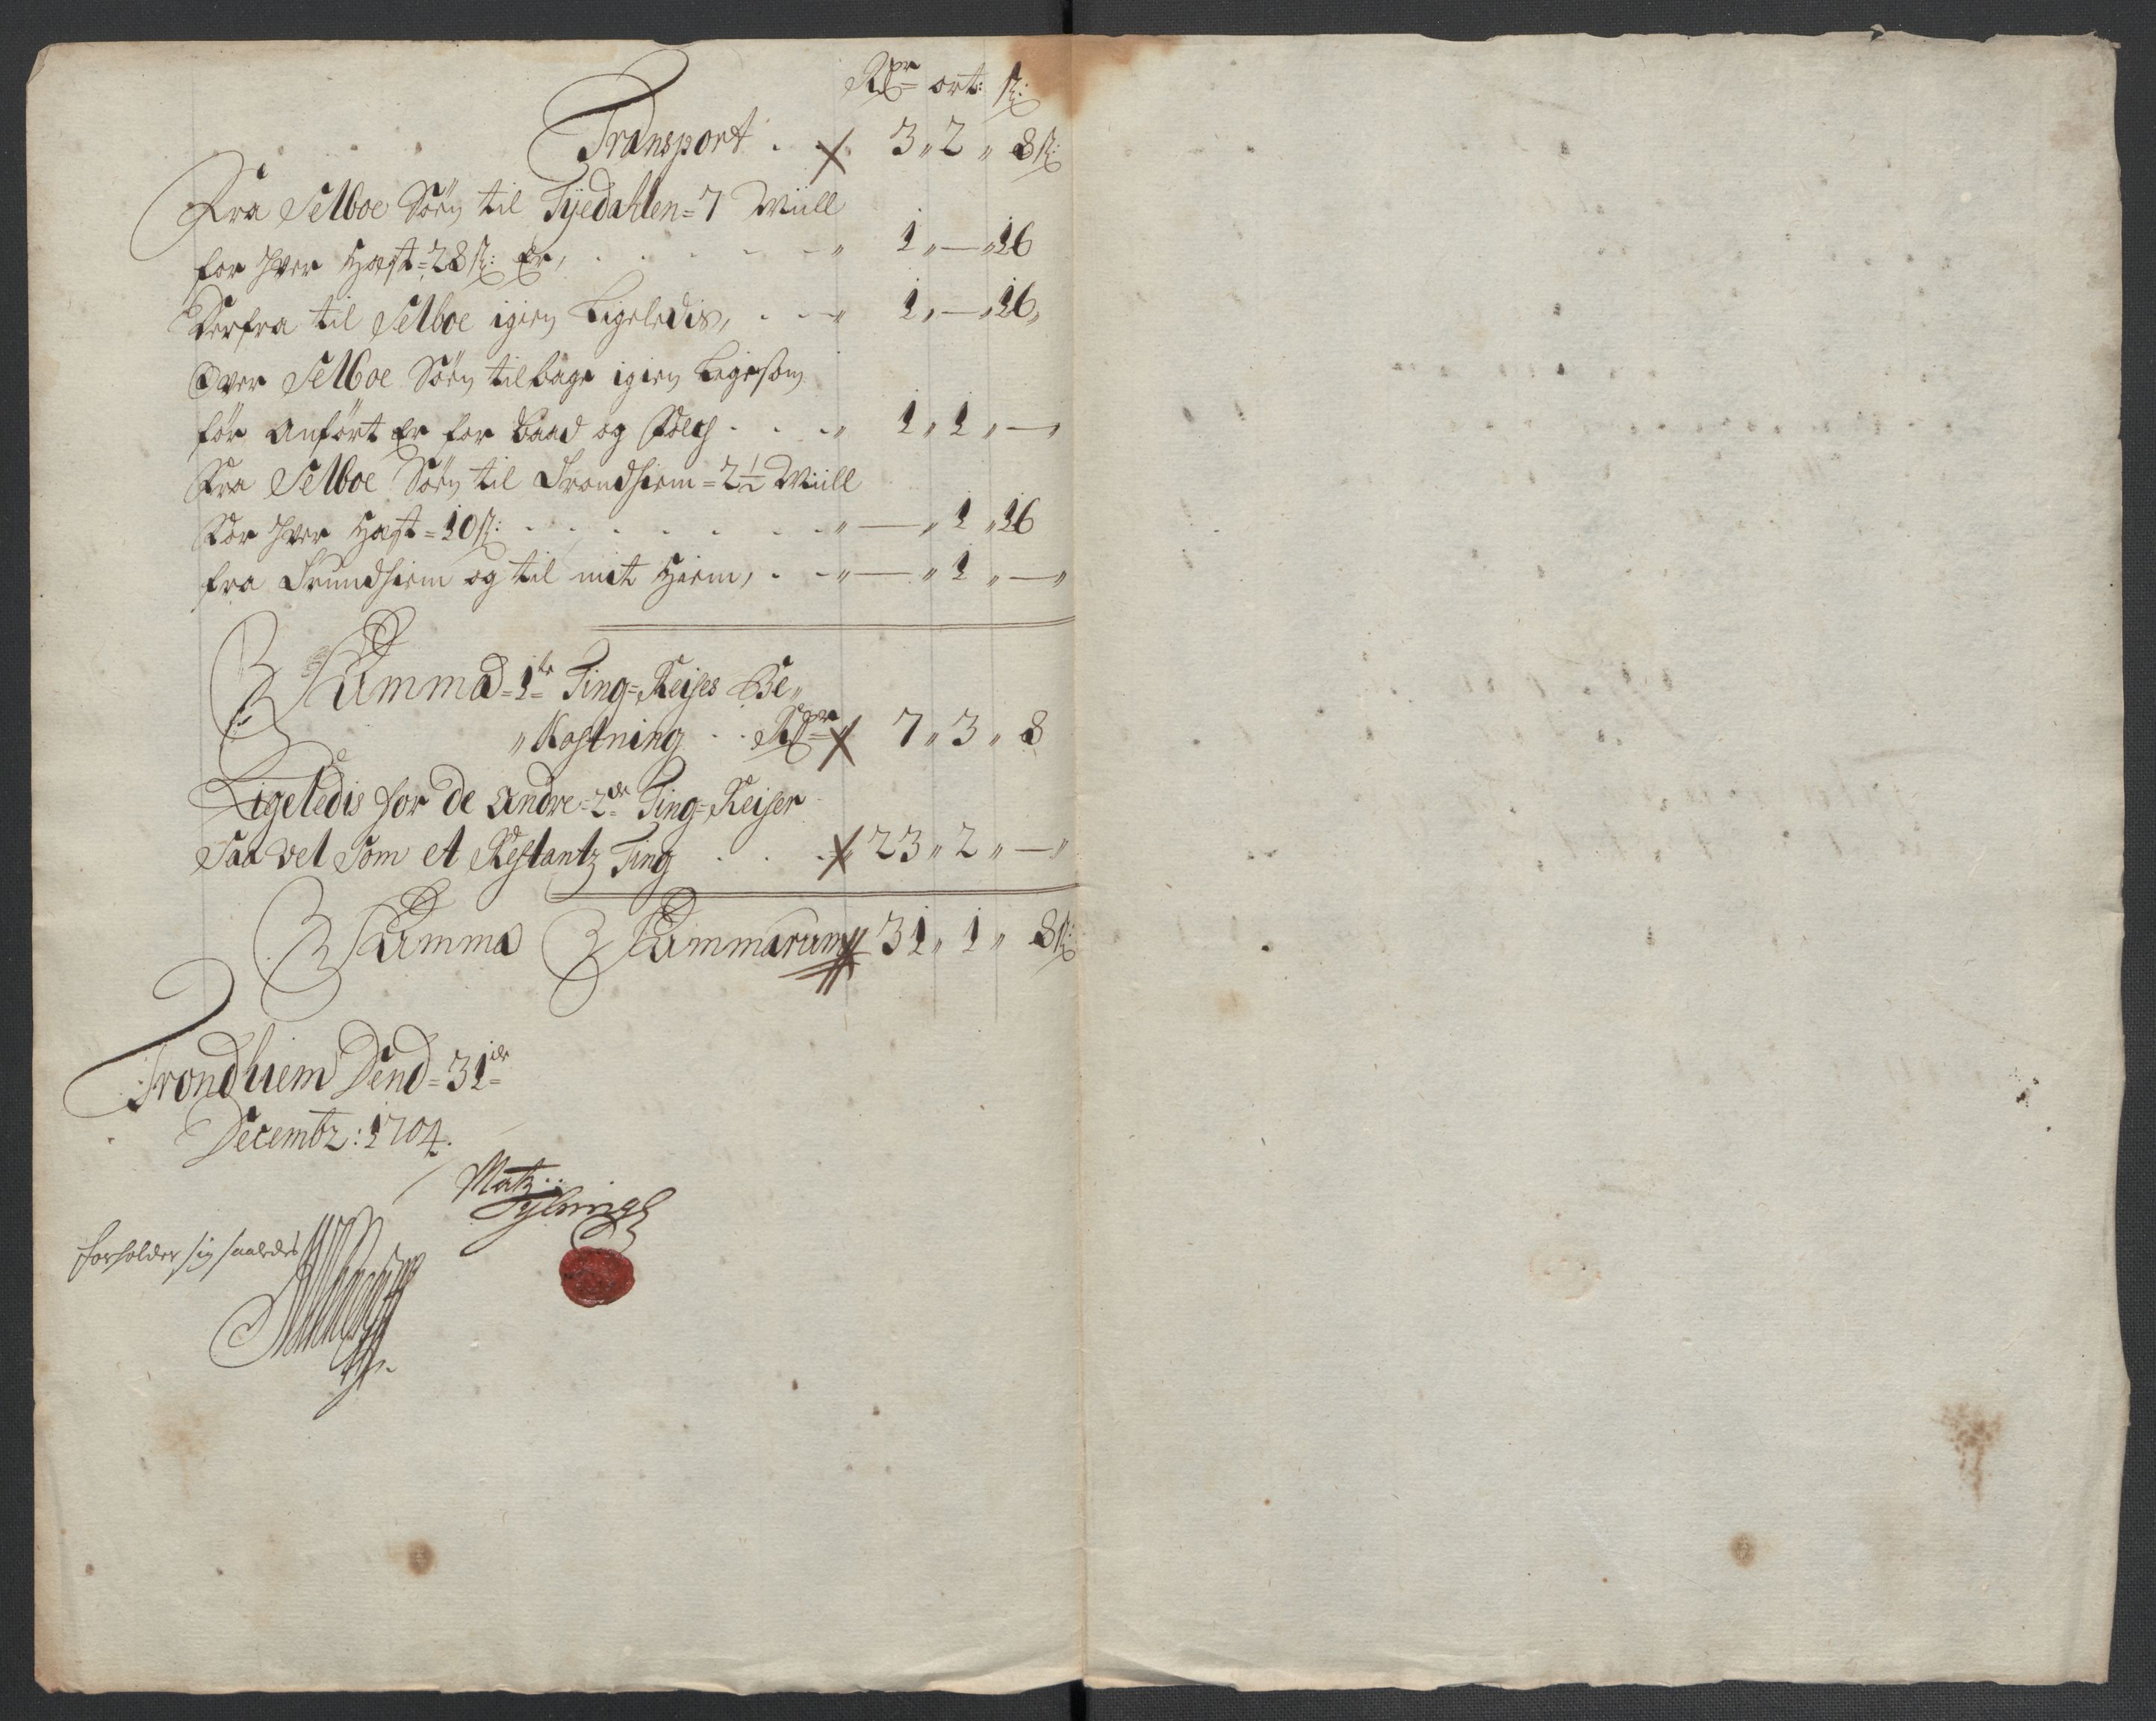 Rdr ort: ß:
Transport . . 3„ 2„ 8ß:
Fra Selboe Söen til Tyedahlen = 7 Miill
for hver Hæst = 28 ß: Er, . . . . . „ 1„ — „ 16
Derfra til Selboe igien Ligeledis, . . . „ 1„ — „ 16„
Over Selboe Söen tilbage igien Ligesom
för Anfört Er for Baad og Folch . . . „ 1„ 1„ — „
Fra Selboe Söen til Trondhiem = 2½ Miill
For hver Hæst = 10 ß: . . . . . . „ — „ 1„ 16
fra Trundhiem og til mit Hiem, . . „ — „ 1„ — „
Summa = 1te Ting = Reises Be„
„Kostning . . Rdr „ 7„ 3„ 8
Ligeledis for de andre = 2de Ting = Reiser
Saa vel Som et Restantz Ting . . . „ 23„ 2„ — „
Summa Summarum 31„ 1„ 8ß:
Trondhiem Dend = 31te =
Decembr: 1704.
Matz..
forholder sig saaledes